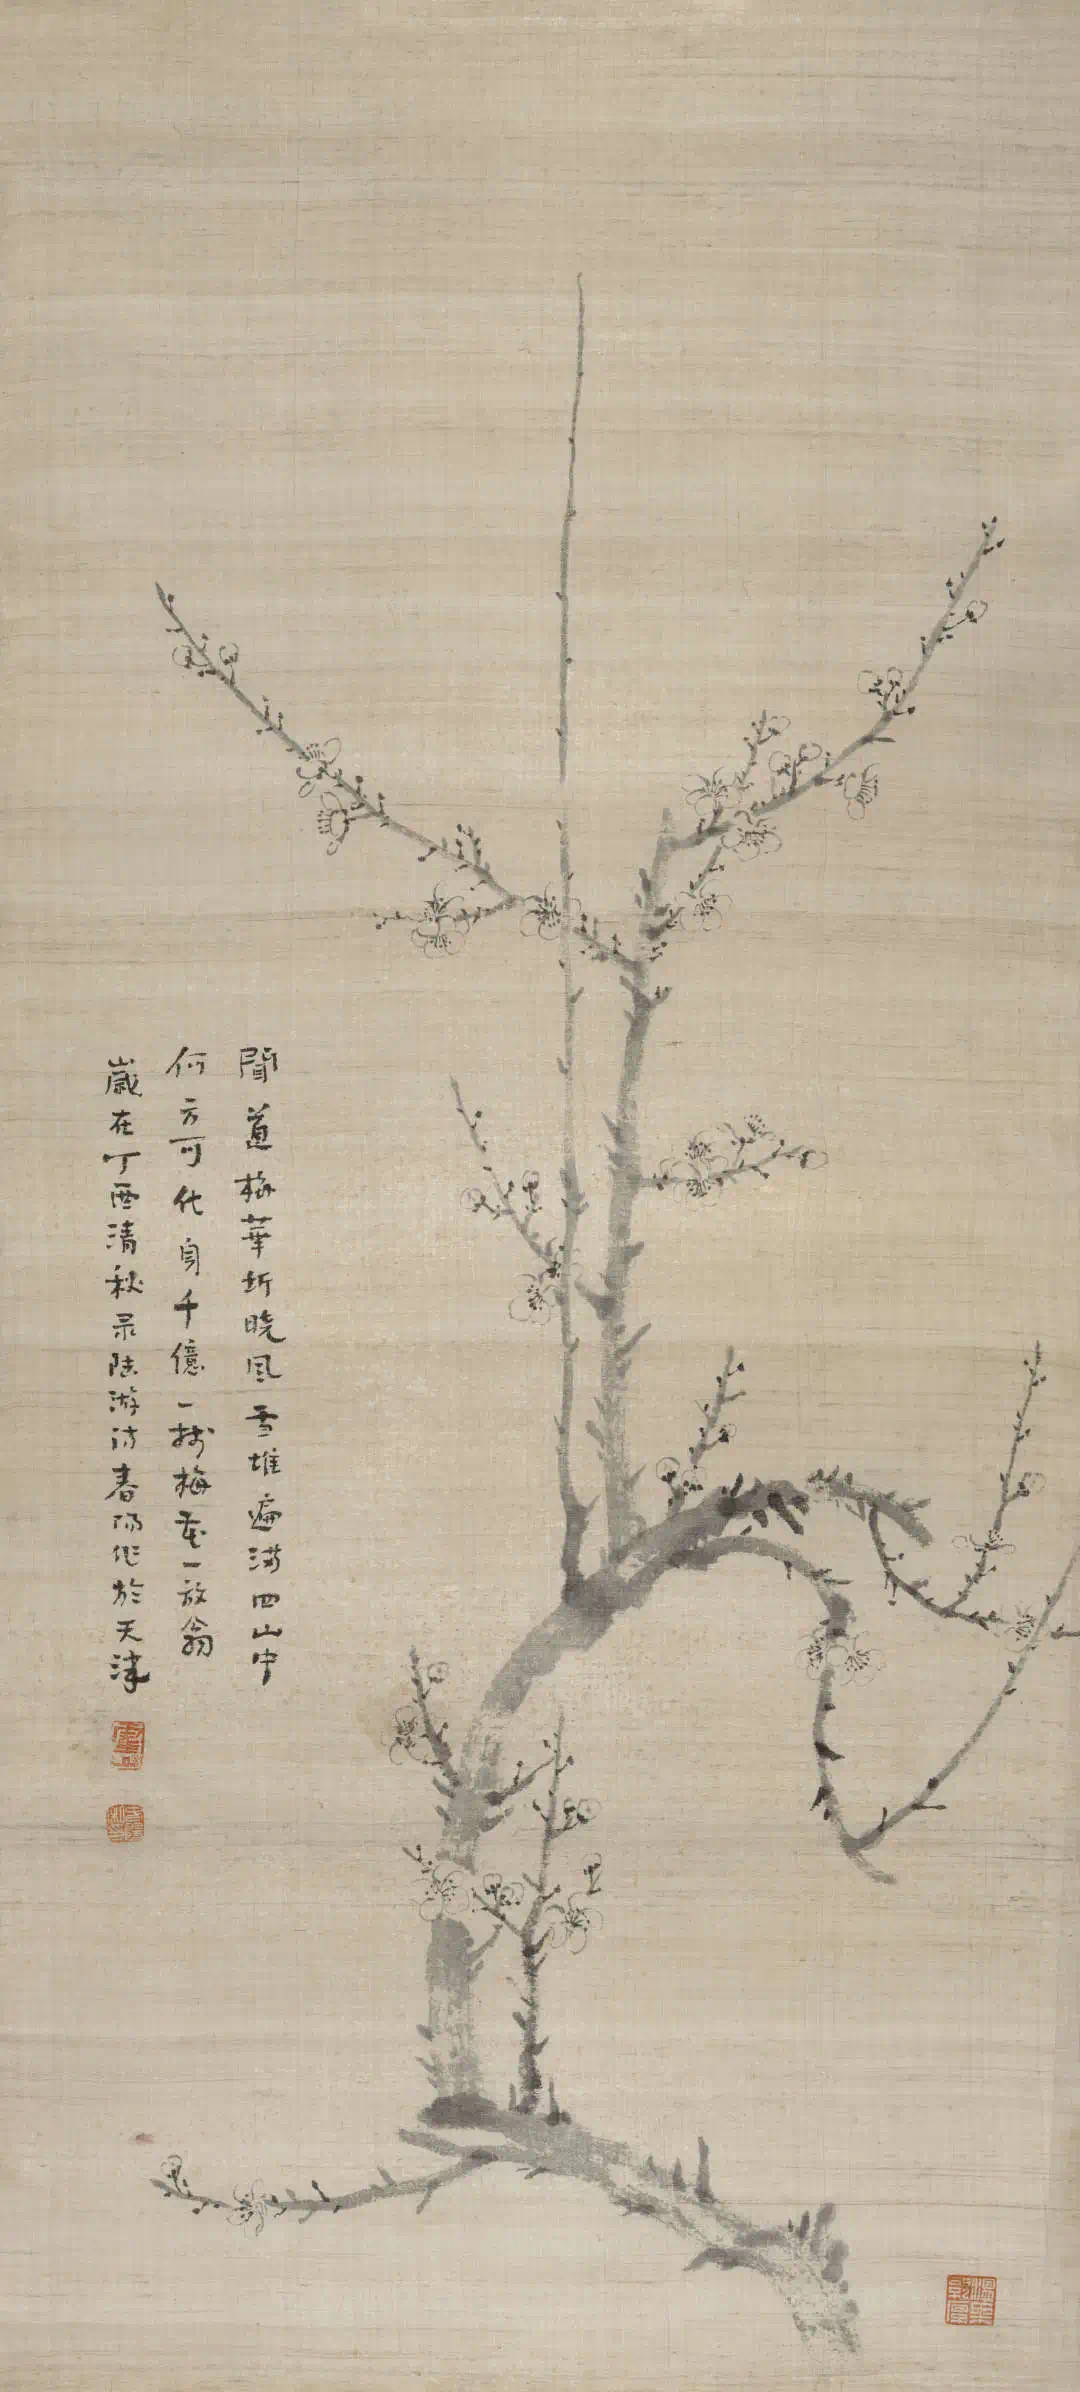 聞道梅華坼曉風雪堆遍滿四山中
何方可化身千億一樹梅花一放翁
歲在丁酉清秋录陆游詩春陽作於天津